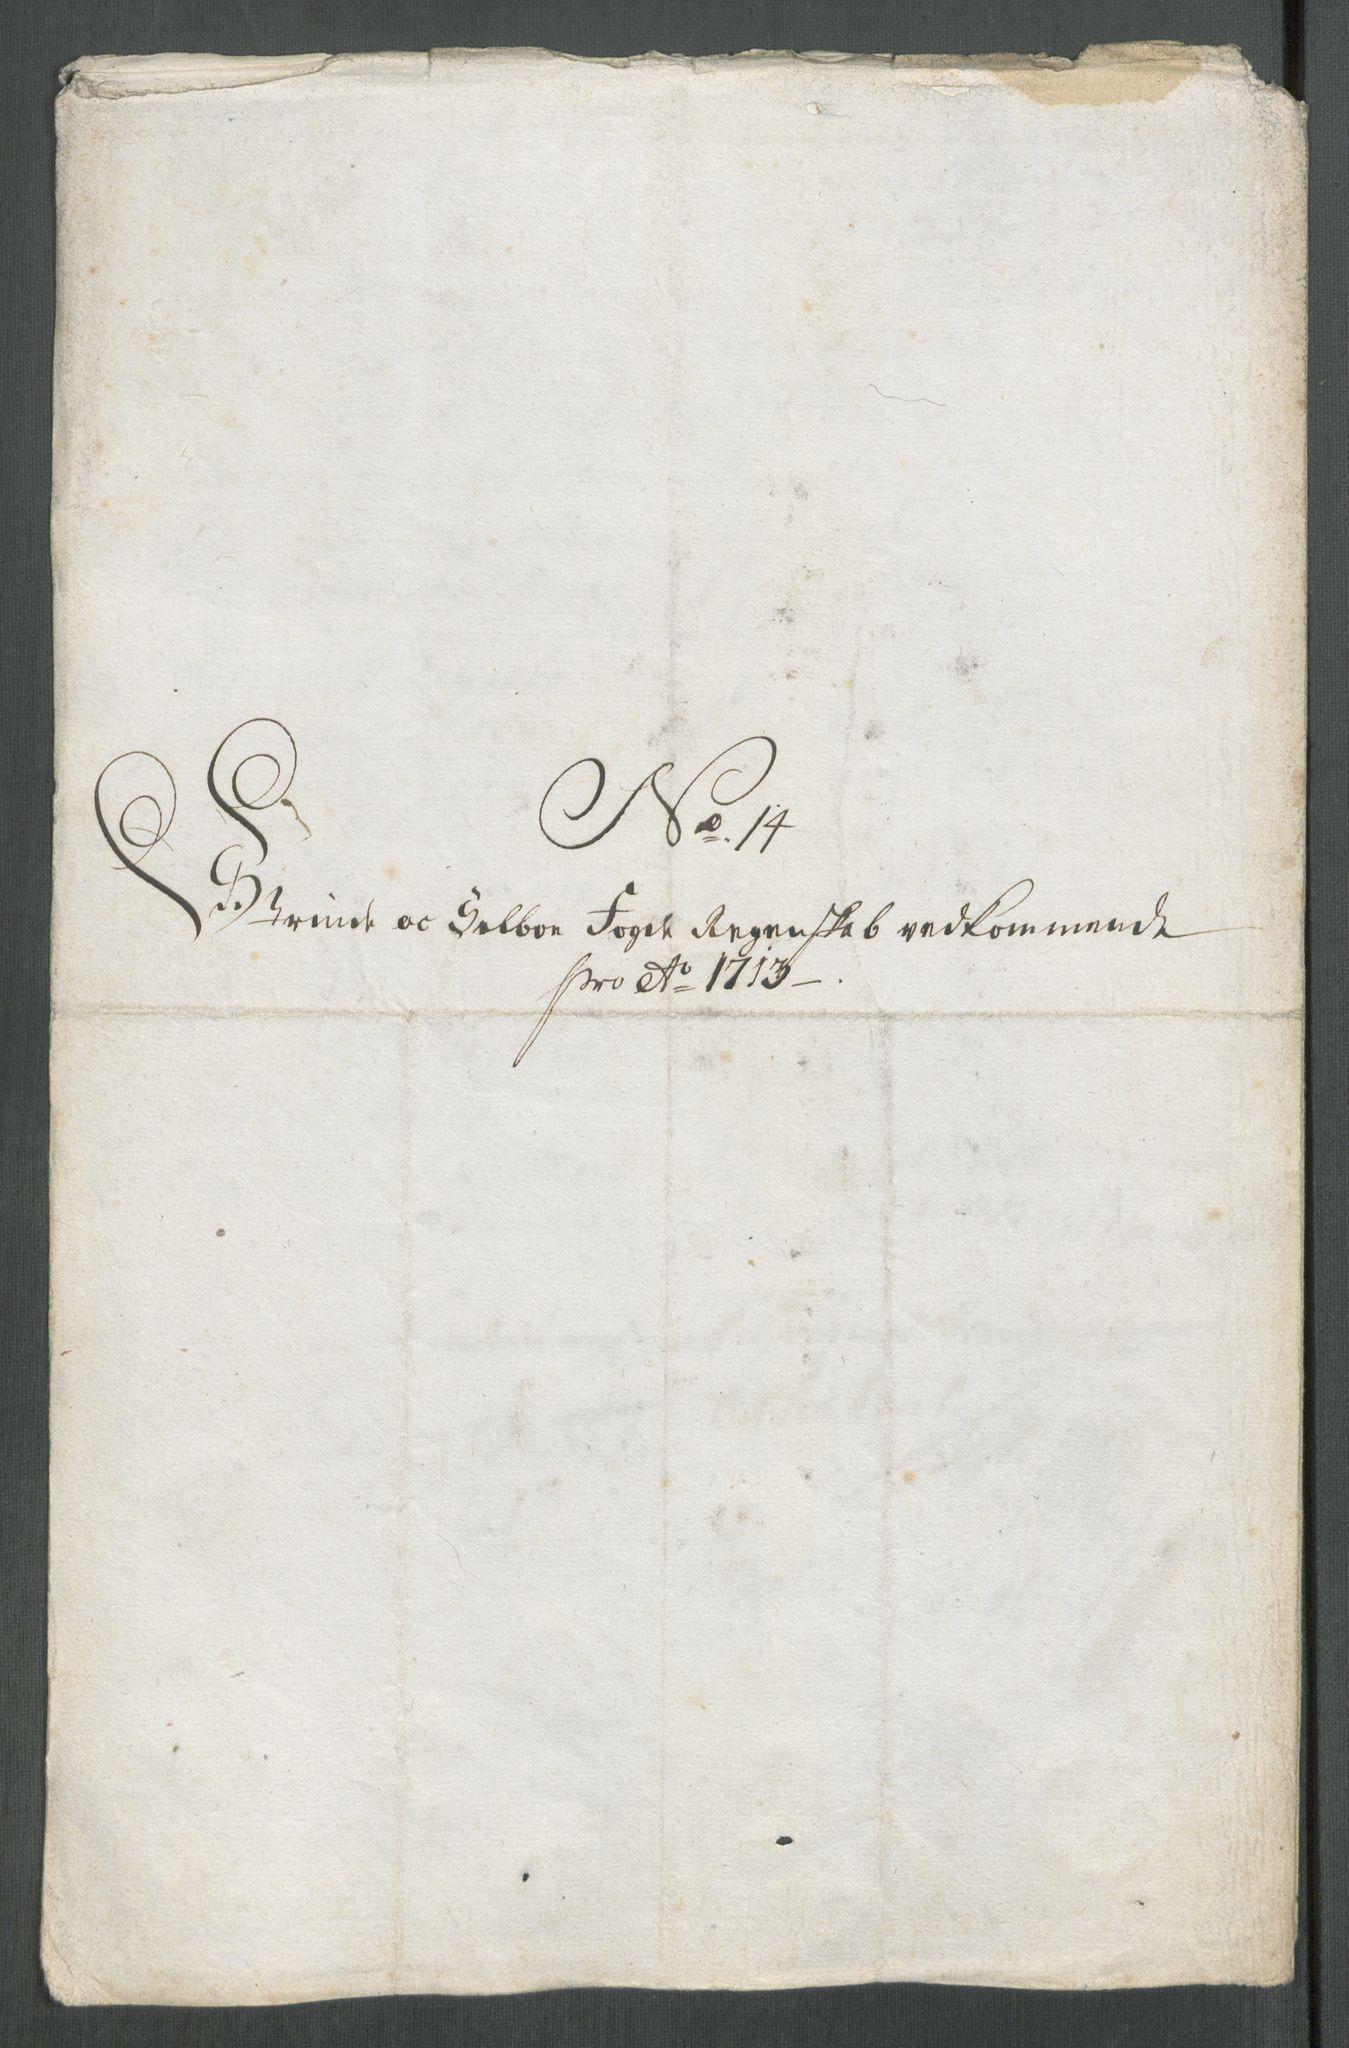 No. 14
Strinde oc Selboe Fogde Regenskab vedkommende
pro Ao 1713